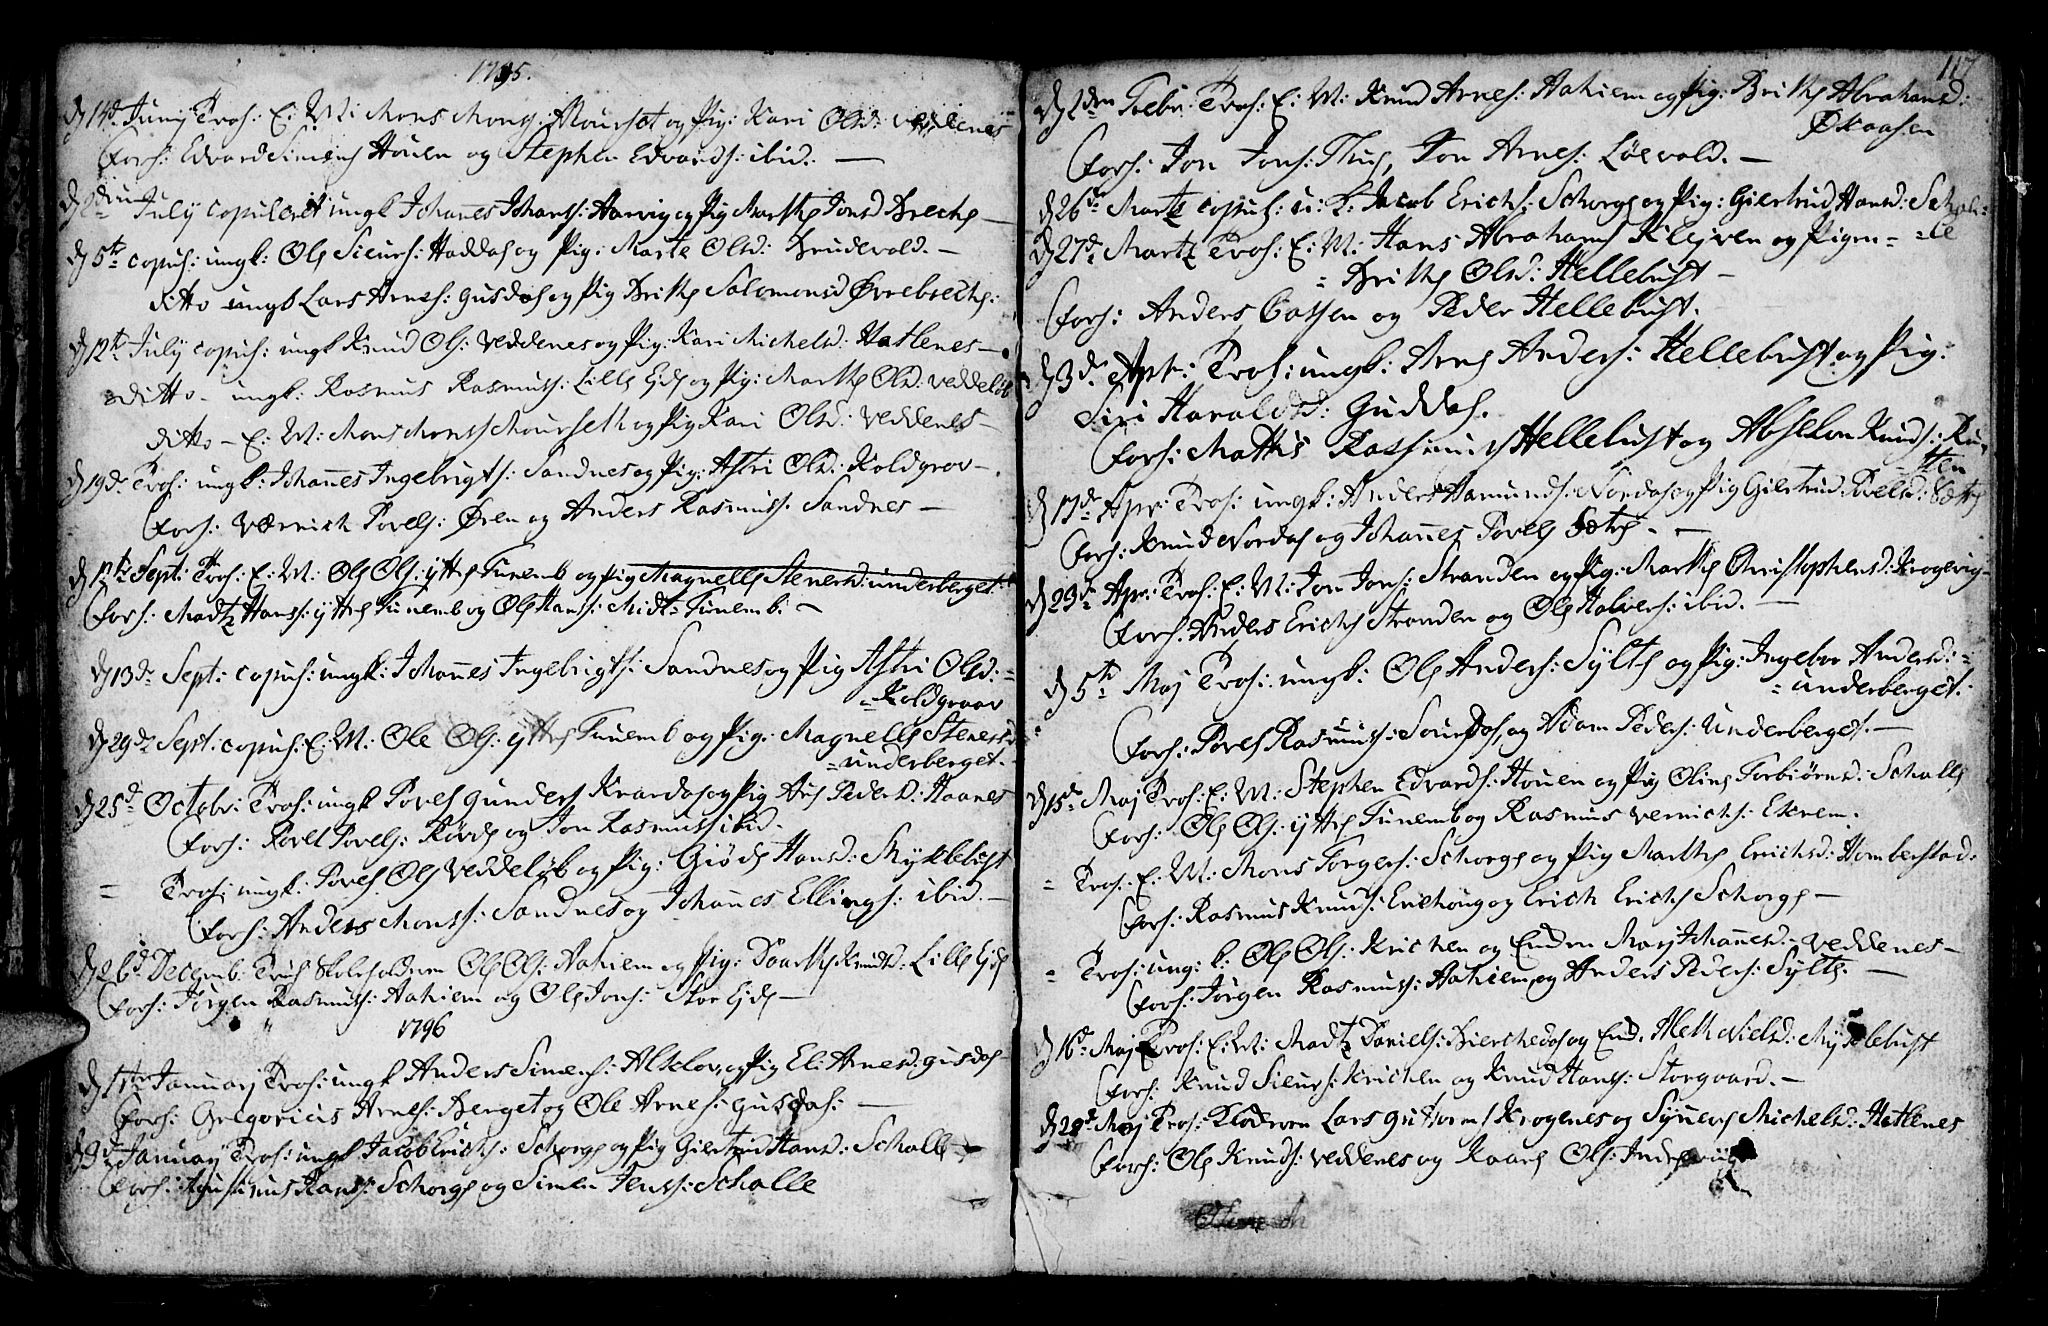 1795.
d 14d. Junij Trol: E: M: Mons Mons: Mourset og Pig: Kari Olsd: Veddenes
Forl: Edvard Simens Houen og Stephen Edvards: ibid. —
July copuleret ungk Johannes Johans: Harvig og Pig Marthe Jonsd Breche —
d 5te copul: ungk: Ole Siurs: Haddal og Pig: Marte Olsd: Brudevold. —
ditto ungk Lars Arnes: Gusdal og Pig Brithe Salomonsd Øvrebreche:
d 12te July copul: ungk Knud Ols: Veddenes og Pig: Kari Michelsd: Hatlenes —
ditto – ungk: Rasmus Rasmus: Lille Ejde og Pig: Marthe Olsd: Veddeløb
ditto – E: M: Mons Mons Mourseth og Pig Kari Olsd: Veddenes —
d 19d: Trol: ungk: Johannes Ingebrigts: Sandnes og Pig: Astri Olsd: Koldgrov —.
Forl: Værnich Povels: Øren og Anders Rasmus: Sandnes —
Sept: Trol: E: M: Ole Ols: Ytre Funemb og Pig Magnelle Stenersd: underberget:
Forl: Madtz Hans: Ytre Funemb og Ole Hans: Midt: Funemb: —
d 13d: Sept: copul: ungk: Johannes Ingebrigts: Sandnes og Pig Astri Olsd: =
= Koldgraav
d 29d: Sept: copul: E: M: Ole Ols: Ytre Funemb og Pig: Magnelle Stenersd
= underberget.
d 25d October: Trol: ungk Povel Gunders Kvardal og Pig Ane Pedersd: Haanes
Forl: Povel Povels: Røvde og Jon Rasmus ibid.
= Trol: ungk: Povel Ols Veddeløb og Pig: Giøde Hansd: Myklebust
Forl: Anders Mons: Sandnes og Johannes Ellings: ibid. —
d 26d: Decemb: Trol Skoleholderen Ole Ols: Aahiem og Pig: Dorthe Knudsd: Lille Ejde
Forl: Jørgen Rasmus: Aahiem og Ole Jons: Stor Ejde —
1796
Januarj Trol: ungk Anders Simens: Alkelov og Pig Eli Arnesd: Gusdal
Forl: Gregorius Arnes: Berget og Ole Arnes: Gusdal: —
Januarj Trol: ungk Jacob Erichs: Schorge og Pig Giertrud Hansd: Schalle
Forl: Hans: Schorge og Simen Jens: Schalle
117
d 2den Febr: Trol: E: M: Knud Arnes: Aahiem og Pig: Brithe Abrahamsd:
Øsaasen
Forl: Jon Jons: Thue, Jon Arnes: Løevold. —
d 26d: Martz copul: u: k: Jacob Erichs: Schorge og Pig: Giertrud Hansd: Schal=
d 27d: Martz Trol: E: M: Hans Abrahams Klejven og Pigen = =le
= Brithe Olsd: Hellebust —
Forl: Anders Catsen og Peder Hellebust.
d 3d: Apr: Trol: ungk: Arne Anders: Hellebust og Pig:
Siri Haraldsd: Guddal.
Forl: Mathis Rasmus Hellebust og Absalon Knuds: Ru=
=sten
d 17d: Apr: Trol: ungk: Anders Hamunds: Nordal og Pig Giertrud Povelsd: Sætre
Forl: Knud Nordal og Johannes Povels Sætre. —
d 23d: Apr: Trol: E: M: Jon Jons: Stranden og Pig: Marthe Christophersd: Krogevig —
Forl: Anders Erichs Stranden og Ole Halvers: ibid. —
d 5te Maj Trol: ungk: Ole Anders: Sylte og Pig: Ingebor Andersd: =
= underberget.
Forl: Povel Rasmus: Sourdal, og Adam Peders: Underberget. —
d 15d: Maj Trol: E: M: Stephen Edvards: Houen og Pig Oline Torbiørnsd: Schalle
Forl: Ole Ols: Ytre Funemb og Rasmus Vernichs: Eknem.
= Trol: E: M: Mons Torgers: Schorge og Pig Marthe Erichsd: Homberstad.
Forl: Rasmus Knuds: Erichoug og Erich Erichs Schorge —
= Trol: ung: k: Ole Ols: Krichen og Enken Marj Johannesd: Veddenes —
Forl: Jørgen Rasmus: Aahiem og Anders Peders: Sylte. —
d 16d: Maj Trol: E: M: Madtz Daniels: Bierchedal og Enk. Aleth Nielsd: Myklebust
Forl: Knud Siurs: Krichen og Knud Hans: Storgaard. —
d 29d: Maj Trol: Kloderen Lars Guttorms Krogenes og Synneve Michelsd: Hatlenes
Forl: Ole Knuds: Veddenes og Kaare Ols: